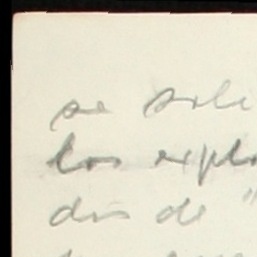 se soli
los explo
dos de "